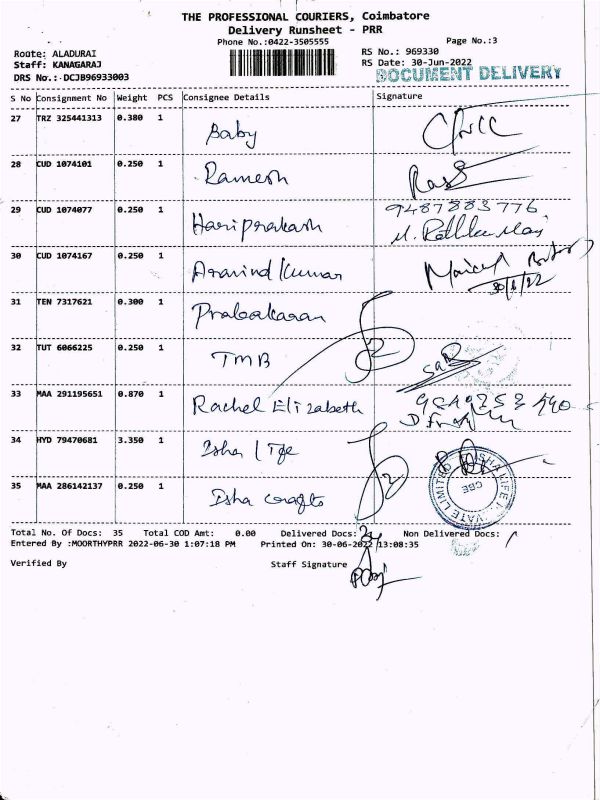 THE PROFESSIONAL COURIERS, Coimbatore
Delivery Runsheet - PRR
Phone No.:0422-3505555
Page No.:3
Route: ALADURAI
RS No.: 969330
Staff: KANAGARAJ
RS Date: 30-Jun-2022
DRS No.: DCJB96933003
DOCUMENT DELIVERY
S No Consignment No Weight PCS Consignee Details Signature
27 TRZ 325441313 0.380 1 Baby
28 CUD 1074101 0.250 1 Ramesh
29 CUD 1074077 0.250 1 Hariprakash 9487883776
30 CUD 1074167 0.250 1 Aravind Kumar 30/6/22
31 TEN 7317621 0.300 1 Prabakaran
32 TUT 6066225 0.250 1 TMB
33 MAA 291195651 0.870 1 Rachel Elizabeth
34 HYD 79470681 3.350 1 Isha
35 MAA 286142137 0.250 1 Isha
CBE
Total No. Of Docs: 35 Total COD Amt: 0.00 Delivered Docs: Non Delivered Docs:
Entered By :MOORTHYPRR 2022-06-30 1:07:18 PM Printed On: 30-06-2022 13:08:35
Verified By Staff Signature